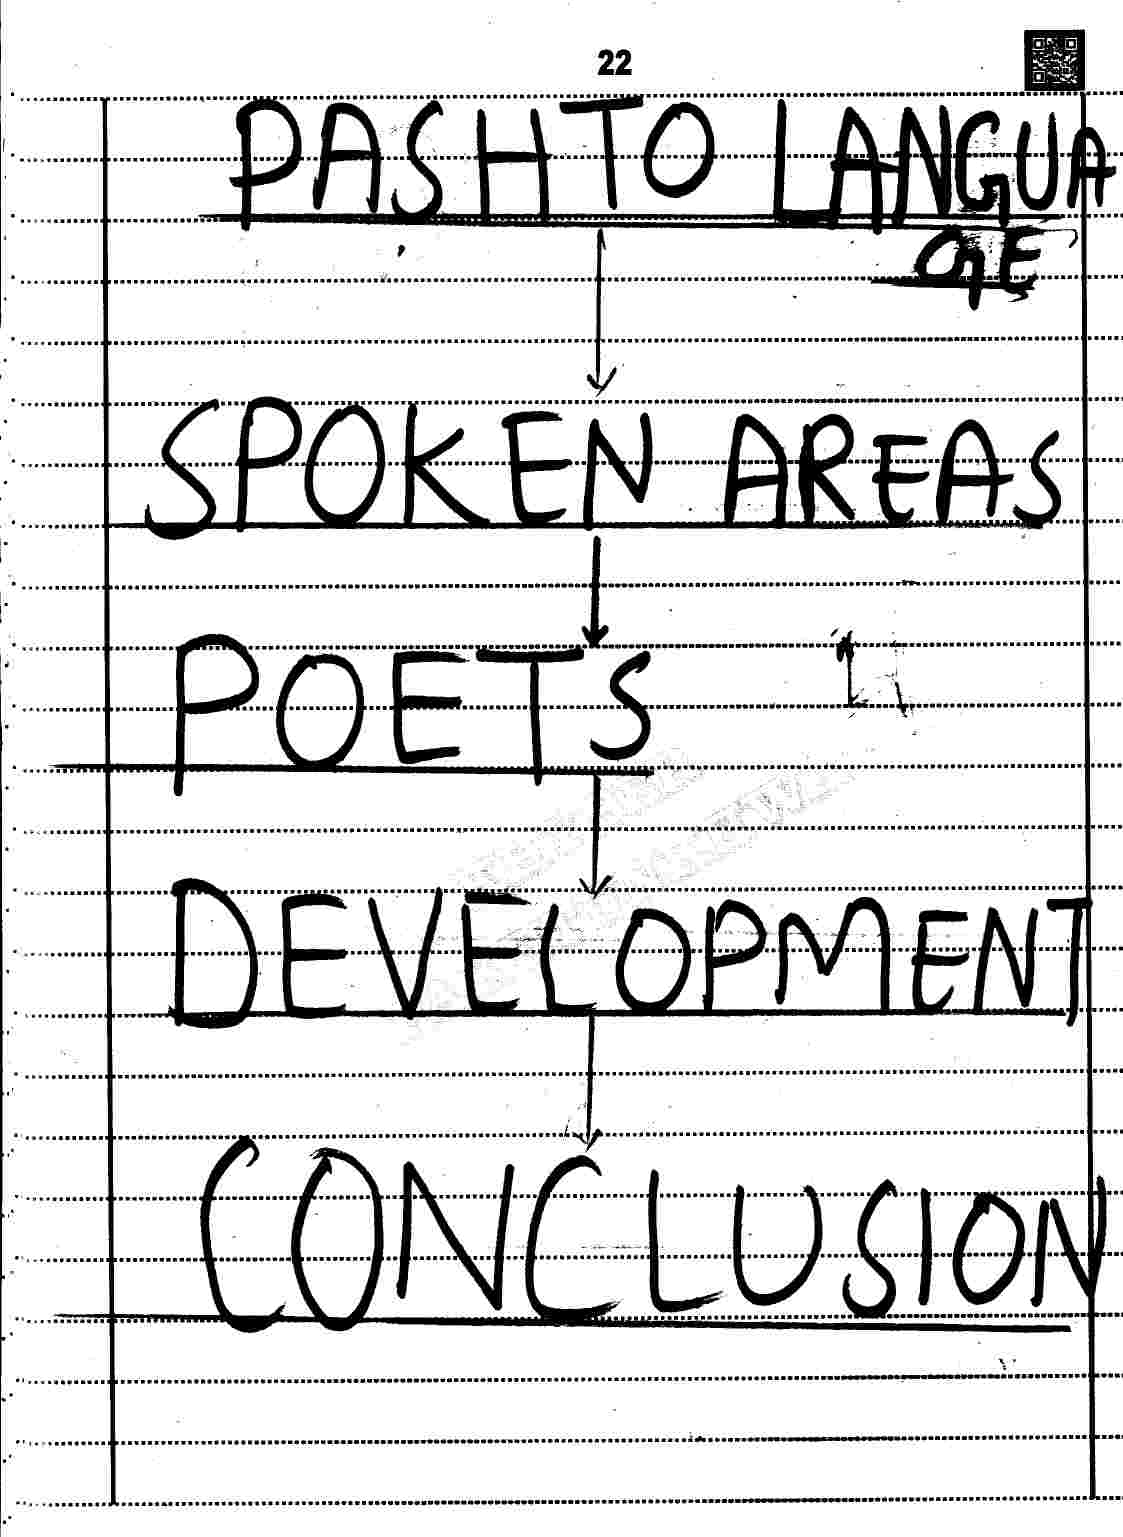 22
PASHTO LANGUA
GE
SPOKEN AREAS
POETS
DEVELOPMENT
CONCLUSION